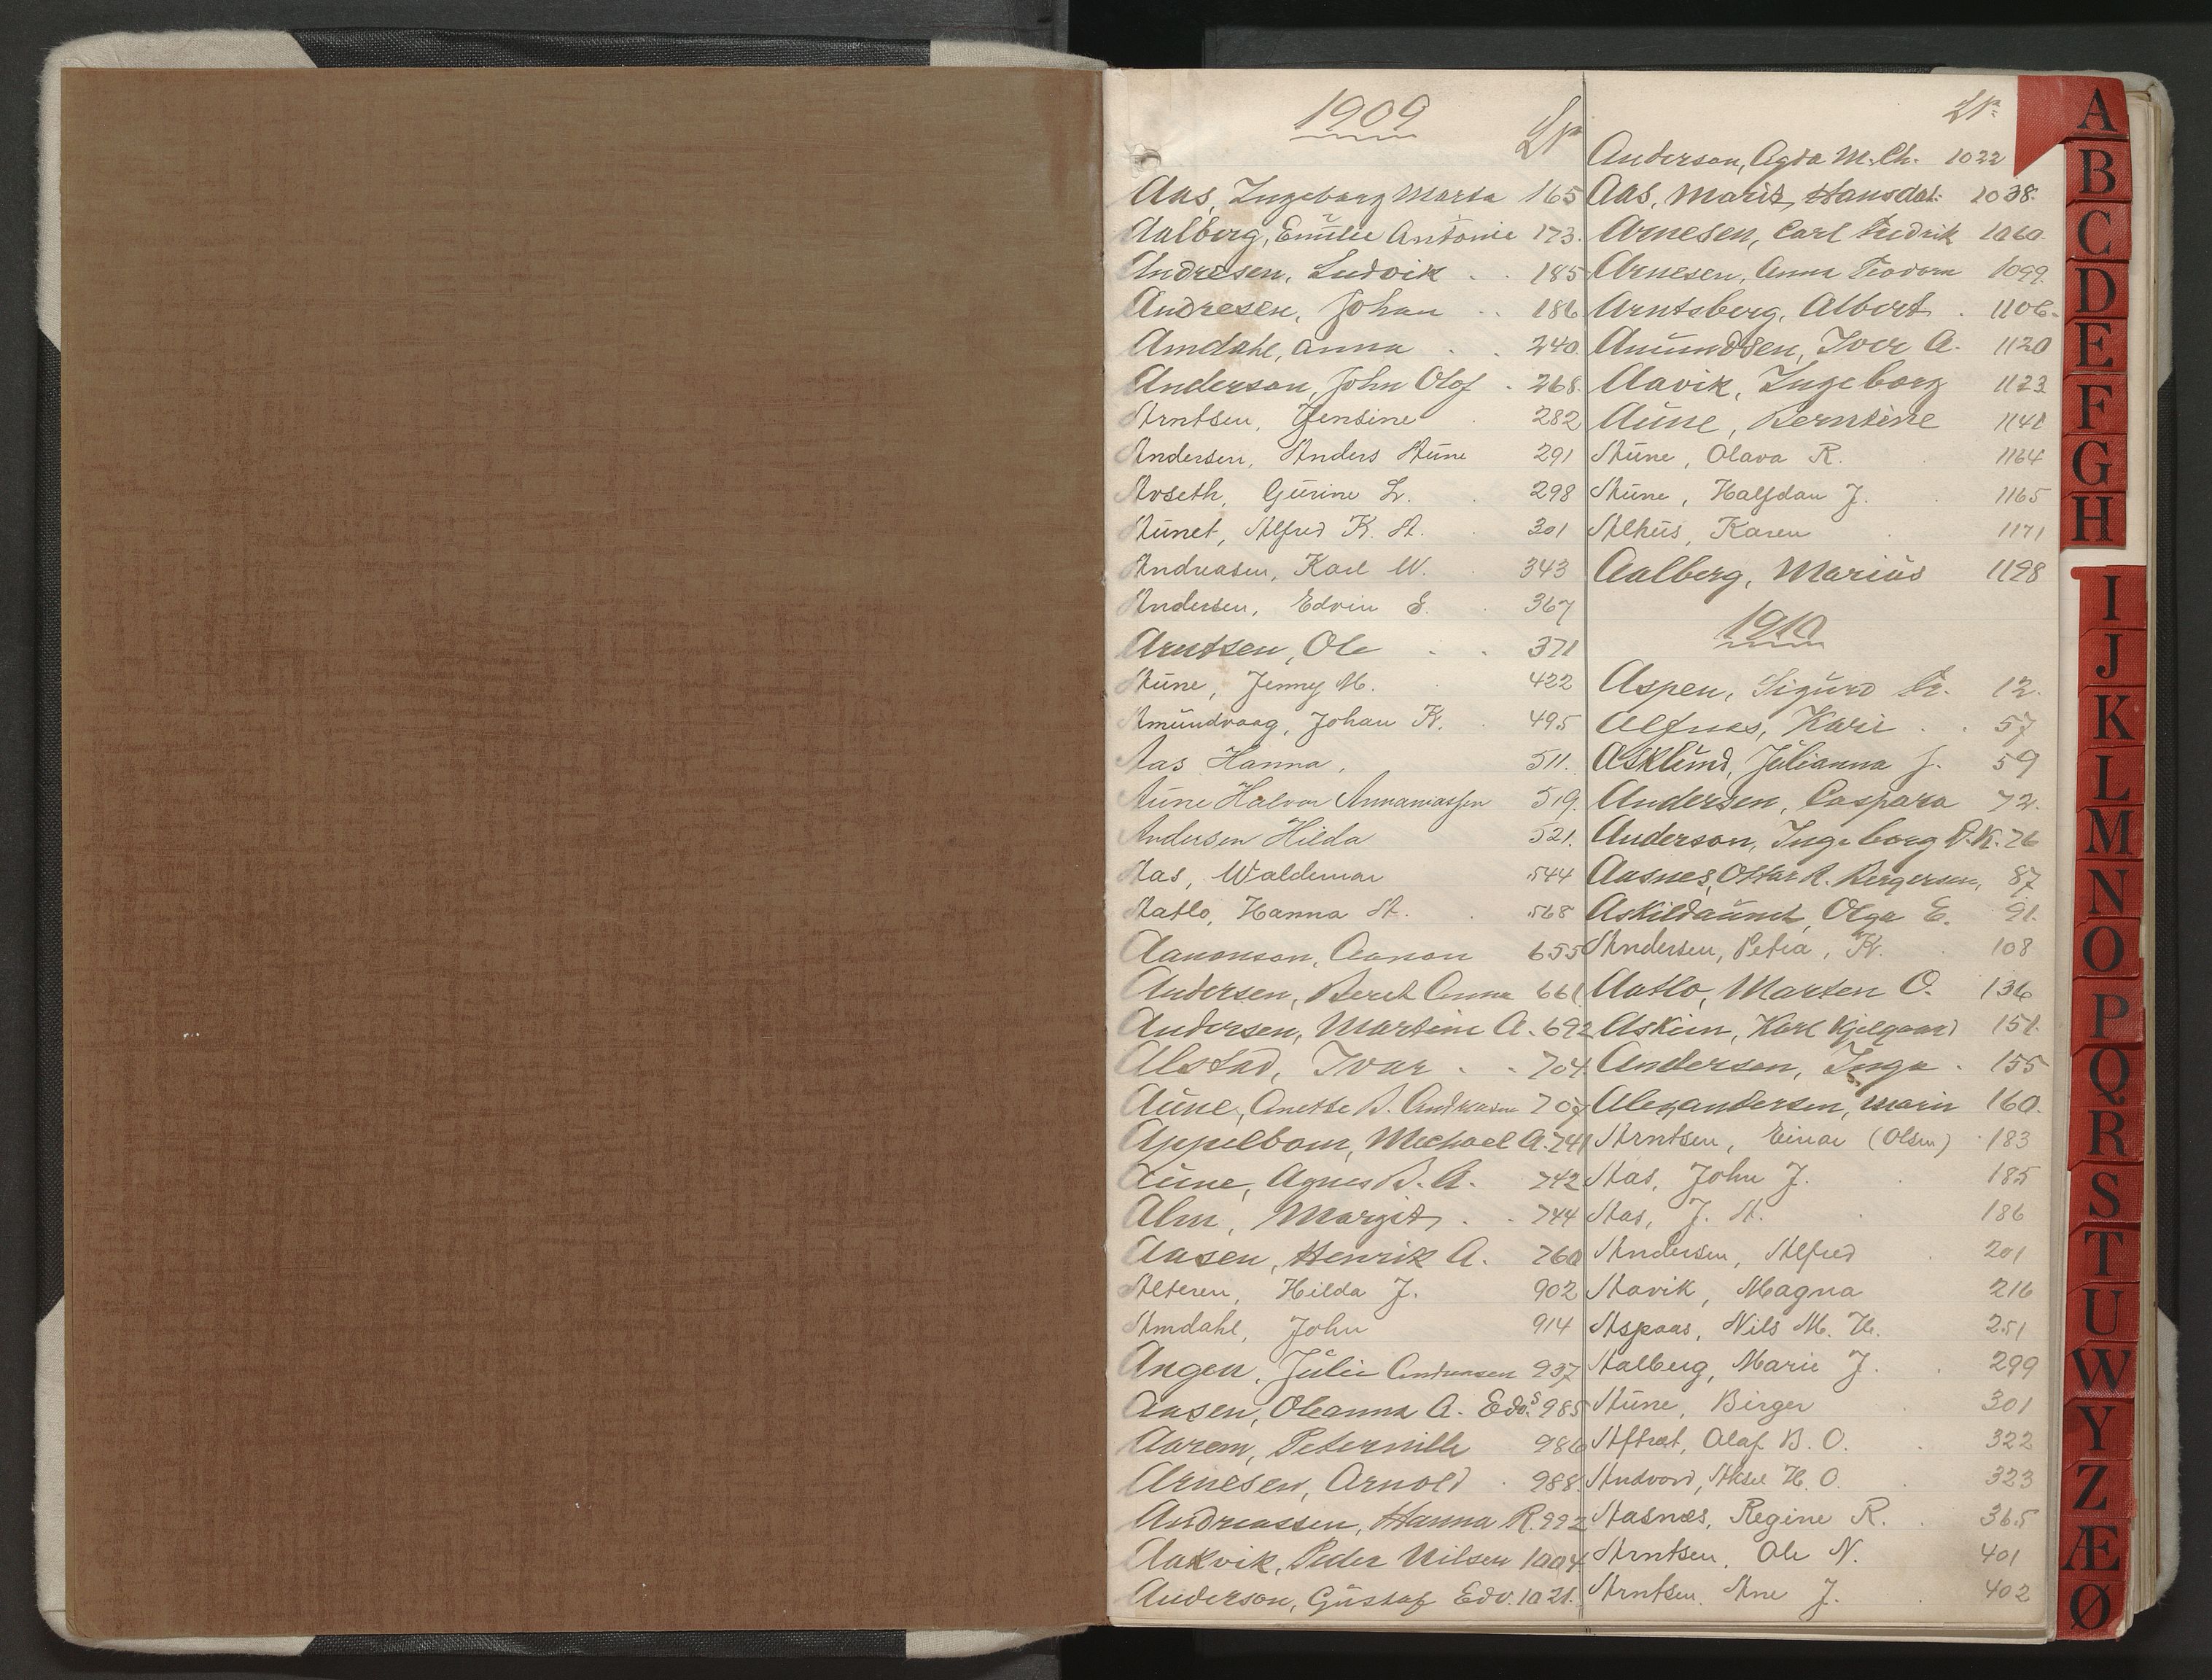 1909
Aas, Ingeborg Marta 165
Aalberg, Emilie Antonie 173.
Andresen, Ludvik . . 185
Andresen, Johan . . 186
Amdahl, Anna . . 240.
Anderson, John Olof . 268.
Arntsen, Jensine . 282
Andersen, Anders Aune 291
Avseth, Gurine L. . 298
Aunet, Alfred K. A. . 301
Andreasen, Karl W. . 343
Andersen, Edvin E. . 367
Arntsen, Ole . . 371
Aune, Jenny M. . 422
Amundvaag, Johan K. . 495
Aas Hanna, 511.
Aune Halvor 519.
Andersen Hilda 521.
Aas, Waldemar 544
Aatlo, Hanna A. . 568
Aanonson, Aanon 655
Andersen, Beret Anna 661
Andersen, Martine A. 692
Alstad, Ivar . . 704.
Aune, Anette B. Andreasen 707
Appelbom, Mechael A. 741
Aune, Agnes B. A. 742
Alm, Margit . . 744
Aasen, Henrik A. 760
Alteren, Hilda J. 902
Amdahl, John 914
Angen, Julie Andreasen 937
Aasen, Oleanna A. Edv.s 985
Aarem, Peternille 986
Arnesen, Arnold . 988.
Andreassen, Hanna R. 992
Aakvik, Peder Nilsen 1004
Anderson, Gustaf Edv. 1021.
Anderson, Agda M. Ch. 1022
Aas, Marit Hansdat: 1038.
Arnesen, Carl Fredrik 1060.
Arnesen, Anna Teodora 1099.
Arntsberg, Albert . 1106.
Amundsen, Iver A. 1120
Aavik, Ingeborg 1123
Aune, Berntine 1141
Aune, Olava R. . 1164
Aune, Halfdan J. . 1165
Alhus, Karen . 1171
Aalberg, Marius 1198
1910
Aspen, Sigurd 12.
Alfnes, Kari . . 57
Asklund, Julianna J. 59
Andersen, Caspara 72.
Anderson, Ingeborg P. K. 76
Aasnes, Ottar R. Bergersen, 87
Askildaunet, Olga E. 91.
Andersen, Petra, K. . 108
Aatlo, Marten O. 136
Askim, Karl Kjelgaard 151.
Andersen, Inga . 155
Alexandersen, Marie 160.
Arntsen, Einar (Olsen) . 183
Aas, John J. . 185
Aas, J. A. . 186
Andersen, Alfred . 201
Aavik, Magna 216
Aspaas, Nils M. H. . 251
Aalberg, Marie J. . 299
Aune, Birger . 301
Aftret, Olaf B. O. . 322
Andvord, Aksel H. O. . 323
Aasnæs, Regine R. . 365
Arntsen, Ole N. . 401
Arntsen, Ane J. . 402
A
B
C
D
E
F
G
H
I
J
K
L
M
N
O
P
Q
R
S
T
U
W
Y
Z
Æ
Ø